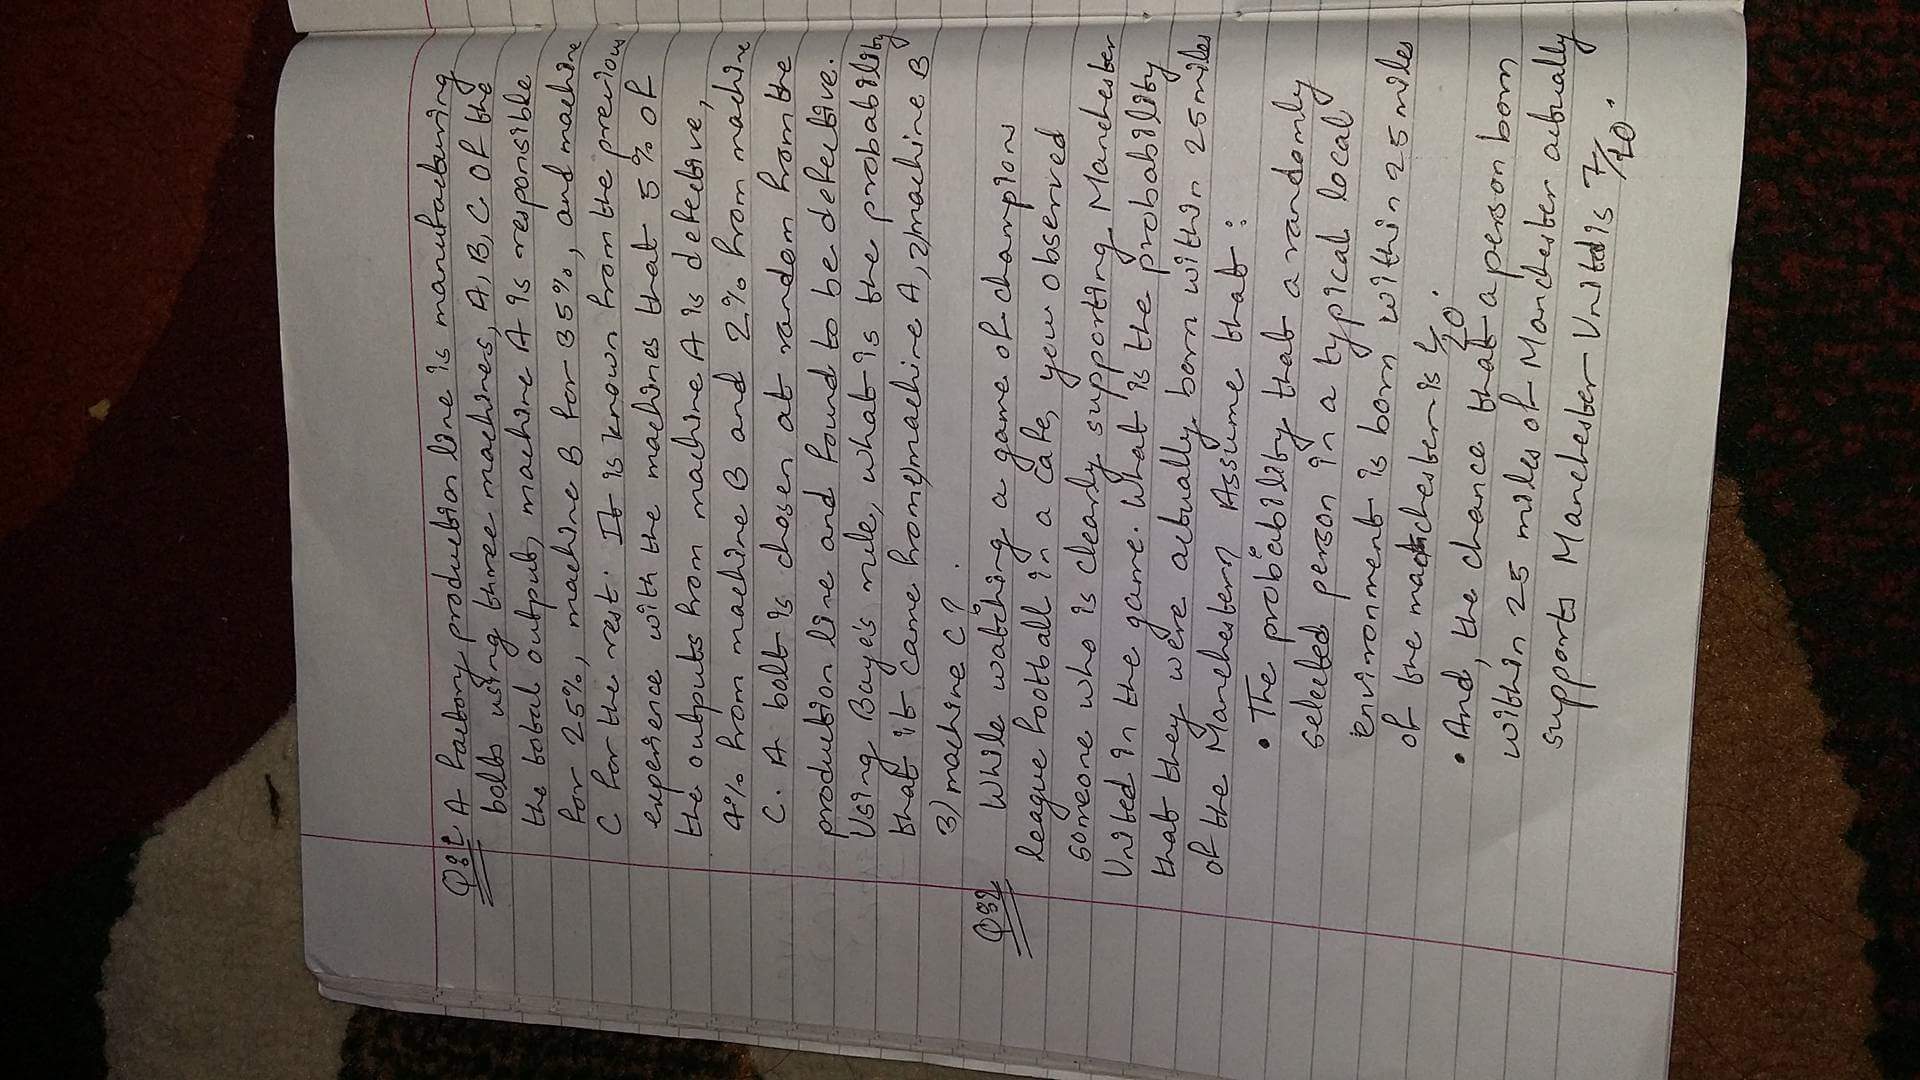 Q:1 A factory production line is manufacturing
bolts using three machines, A, B, C Of the
the total output, machine A is responsible
for 25%, machine B for 35%, and machine
C for the rest. It is known from the previous
experience with the machines that 5% of
the outputs from machine A is defective,
4% from machine B and 2% from machine
C. A bolt is chosen at random from the
production line and found to be defective.
Using Baye's rule, what is the probability
that it came from 1) machine A, 2) machine B
3) machine C?
Q:2 While watching a game of champions
league football in a cafe, you observed
someone who is clearly supporting Manchester
United in the game. What is the probability
that they were actually born within 25 miles
of the Manchester? Assume that :
• The probability that a randomly
selected person in a typical local
environment is born within 25 miles
of the manchester is 1/20.
• And, the chance that a person born
within 25 miles of Manchester actually
supports Manchester United is 7/10.